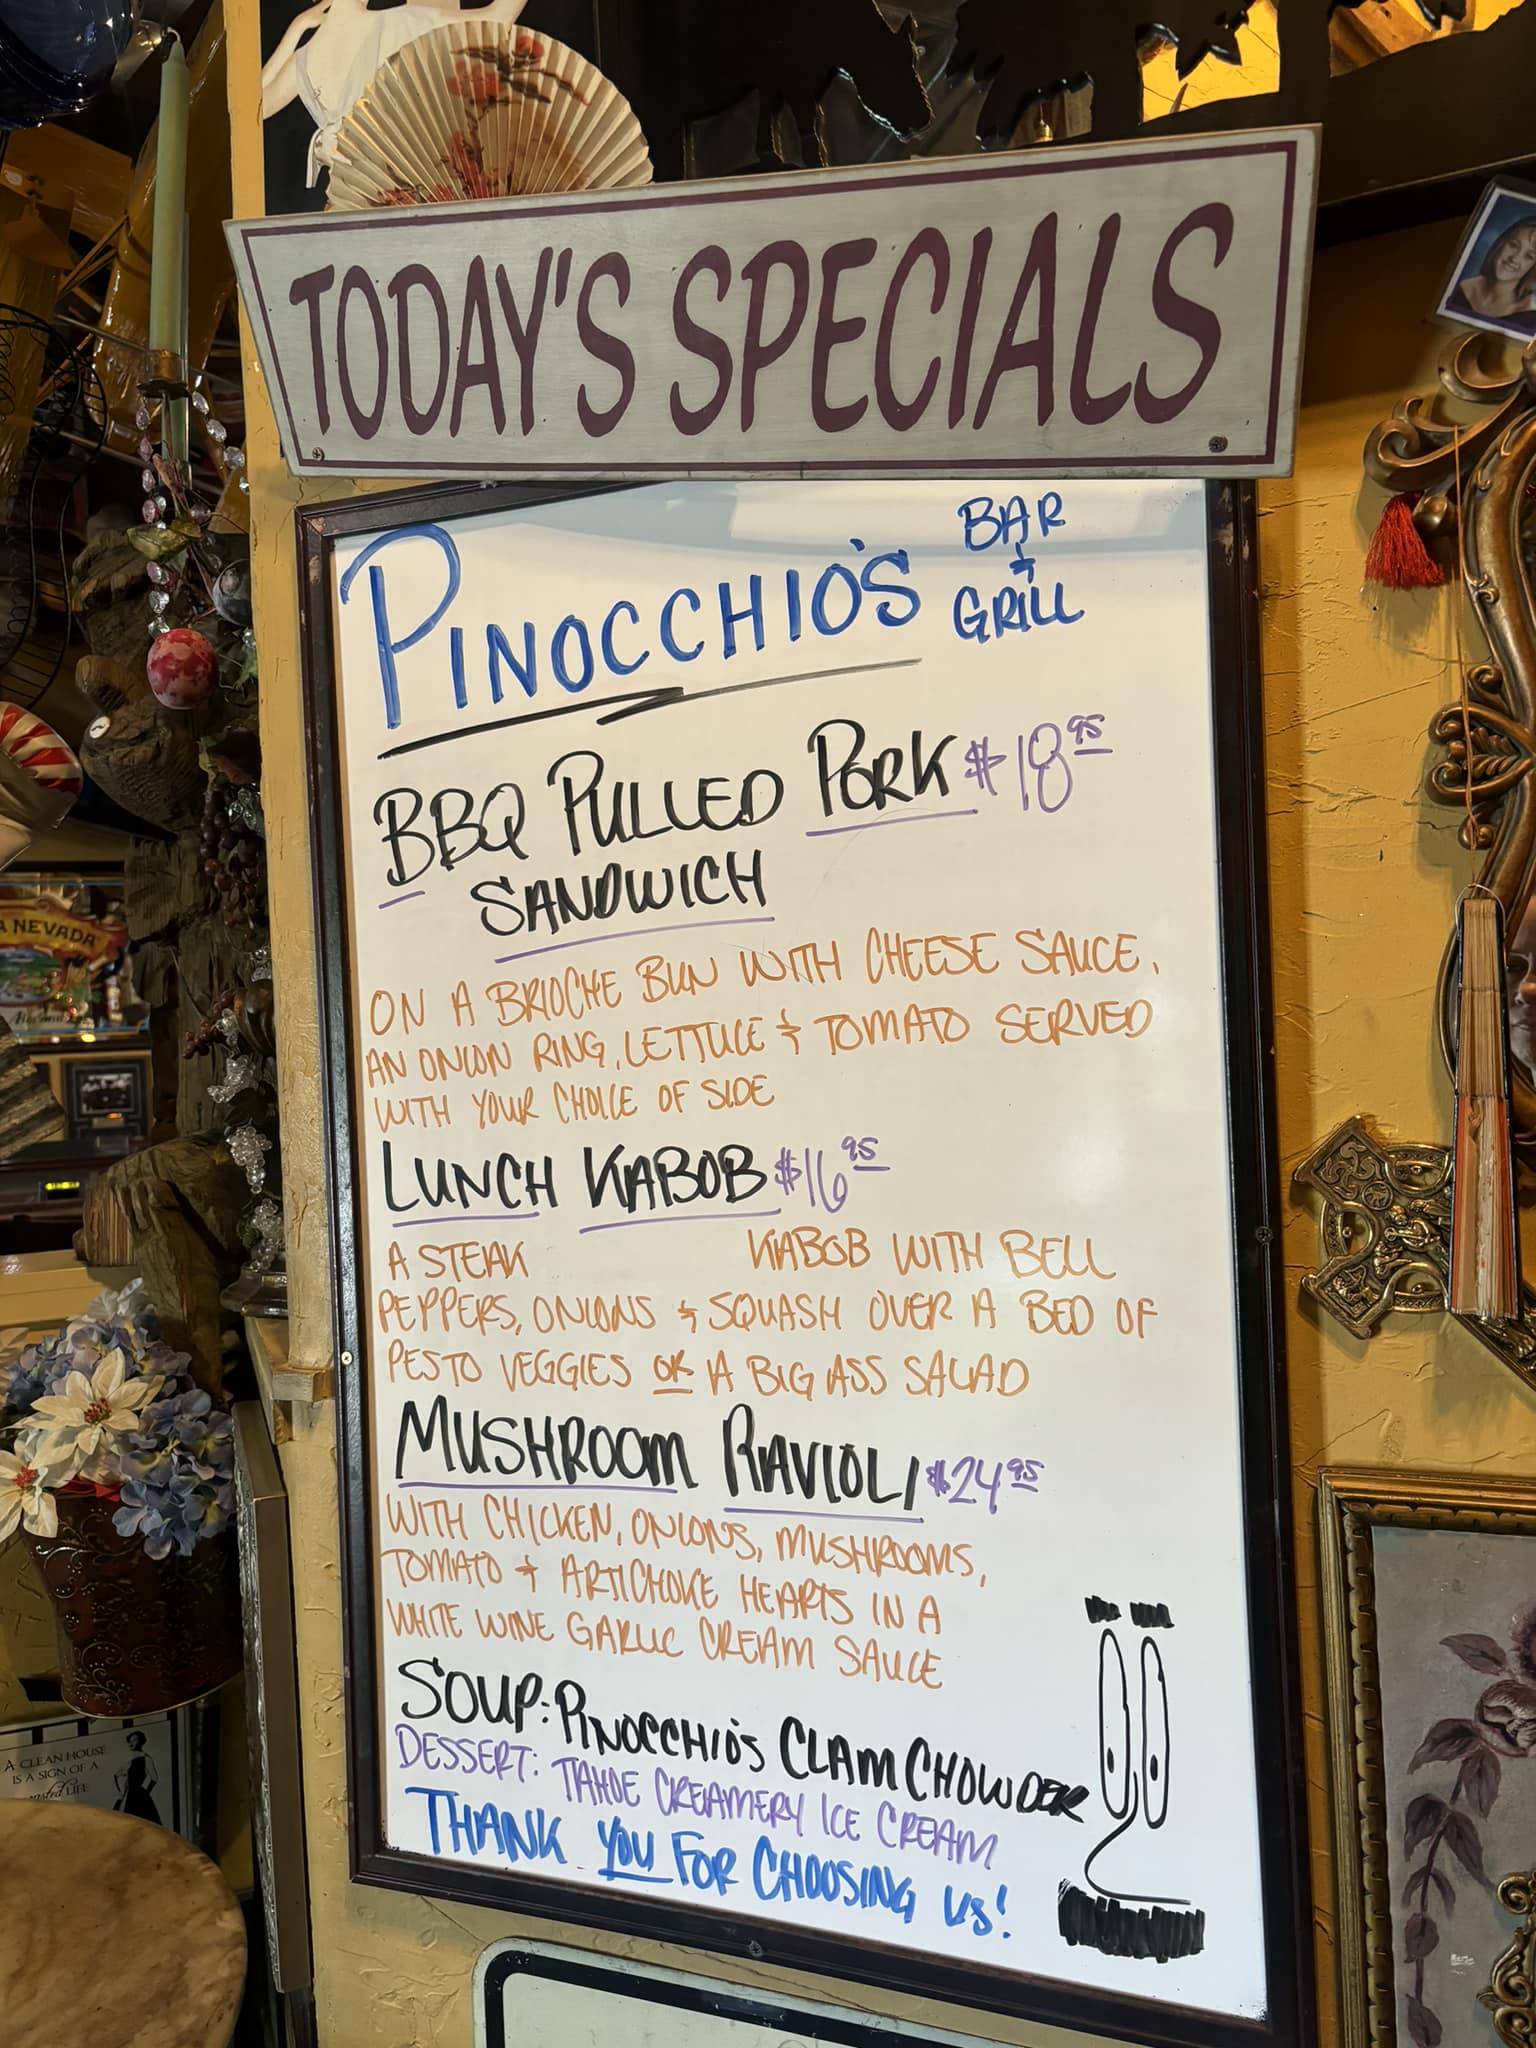 TODAY'S SPECIALS
PINOCCHIO'S BAR & GRILL
BBQ PULLED PORK $18.95
SANDWICH
ON A BRIOCHE BUN WITH CHEESE SAUCE,
AN ONION RING, LETTUCE & TOMATO SERVED
WITH YOUR CHOICE OF SIDE
LUNCH KABOB $16.95
A STEAK KABOB WITH BELL
PEPPERS, ONIONS & SQUASH OVER A BED OF
PESTO VEGGIES OR A BIG ASS SALAD
MUSHROOM RAVIOLI $24.95
WITH CHICKEN, ONIONS, MUSHROOMS,
TOMATO & ARTICHOKE HEARTS IN A
WHITE WINE GARLIC CREAM SAUCE
SOUP: PINOCCHIO'S CLAM CHOWDER
DESSERT: TAHOE CREAMERY ICE CREAM
THANK YOU FOR CHOOSING US!
NEVADA
A CLEAN HOUSE
IS A SIGN OF A
LIFE